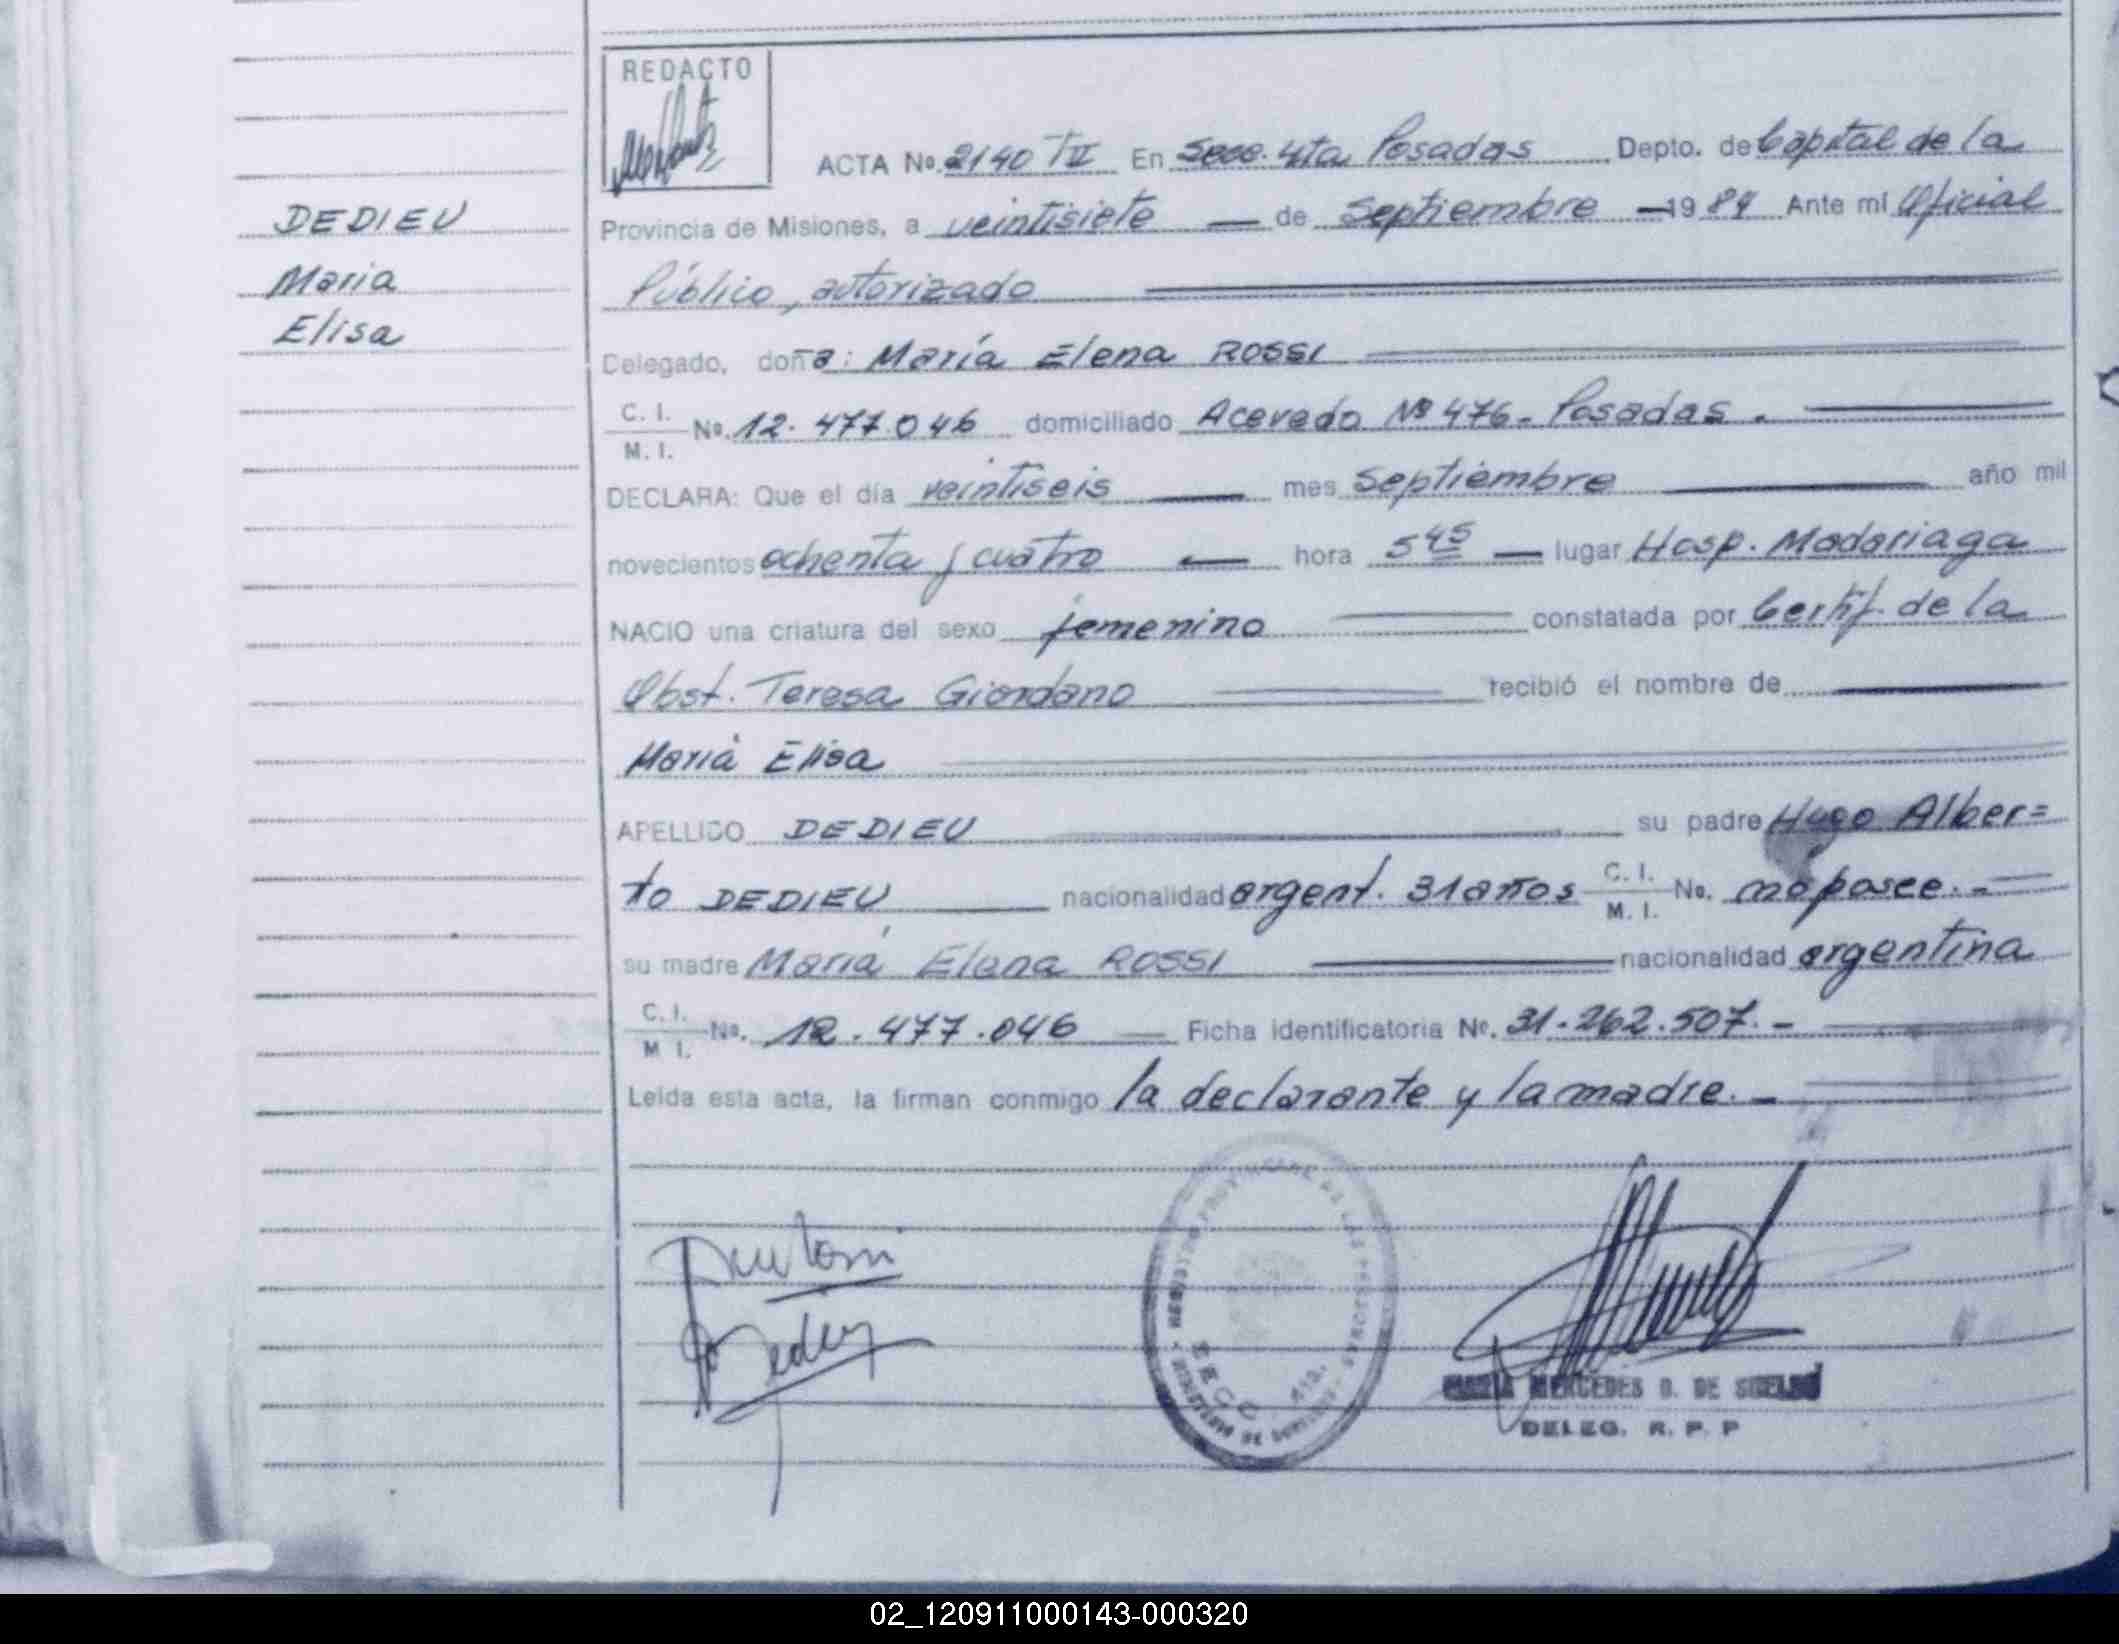 REDACTO
ACTA No. 2140 TII En Secc. 4ta Posadas Depto. de Capital de la
DEDIEU
Provincia de Misiones, a veintisiete — de Septiembre — 1984 Ante mí Oficial
Maria
Público, autorizado
Elisa
Delegado, doña: María Elena ROSSI
C. I.
M. I.
No. 12.477.046 domiciliado Acevedo Nº 476 - Posadas. -
DECLARA: Que el día veintiseis — mes Septiembre — año mil
novecientos ochenta y cuatro — hora 5 45 — lugar Hosp. Madariaga
NACIO una criatura del sexo femenino constatada por Certif. de la
Obst. Teresa Giordano recibió el nombre de
María Elisa
APELLIDO DEDIEU su padre Hugo Alber=
to DEDIEU nacionalidad argent. 31 años C. I. M. I. No. no posee. -
su madre María Elena ROSSI nacionalidad argentina
C. I.
M I.
No. 12.477.046 — Ficha identificatoria Nº. 31.262.507. -
Leída esta acta, la firman conmigo la declarante y la madre. -
PROVINCIAL DE LAS PERSONAS
MINISTERIO DE
SECC. 4ta.
MARIA MERCEDES D. DE
DELEG. R. P. P
02_120911000143-000320